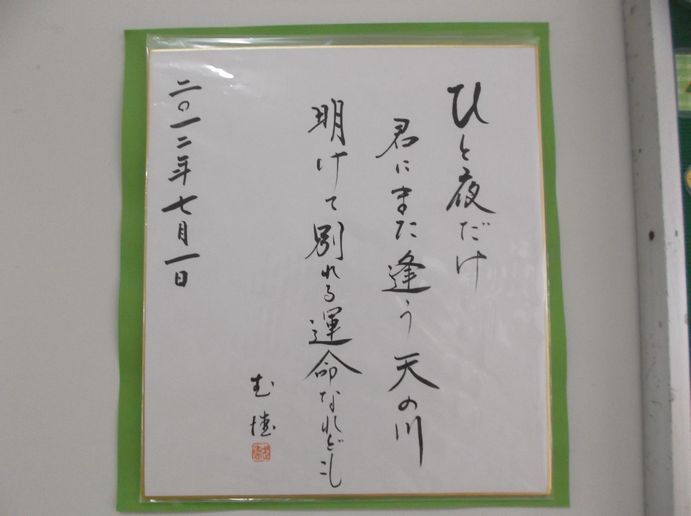 ひと夜だけ
君にまた逢う天の川
明けて別れる運命なれども
二〇一二年七月一日